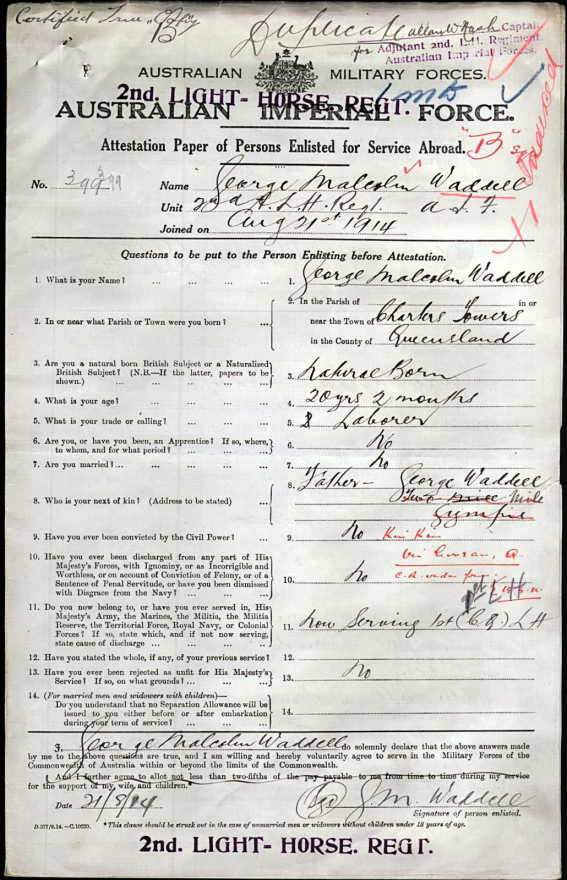 Certified True Copy
Duplicate
Captain
for Adjutant and. Lt. Regiment
Australian Imperial Forces.
AUSTRALIAN MILITARY FORCES.
2nd. LIGHT-HORSE. REGT.
AUSTRALIAN IMPERIAL FORCE.
Attestation Paper of Persons Enlisted for Service Abroad. "B"
No. 399
Name George Malcolm Waddell
Unit 2nd A.L.H. Regt. A.I.F.
Joined on Aug 21st 1914
Questions to be put to the Person Enlisting before Attestation.
1. What is your Name? ... ... ... 1. George Malcolm Waddell
2. In or near what Parish or Town were you born? ... 2. In the Parish of in or
near the Town of Charters Towers
in the County of Queensland
3. Are you a natural born British Subject or a Naturalized
British Subject? (N.B.—If the latter, papers to be
shown.) ... ... ... ... 3. Natural Born
4. What is your age? ... ... ... 4. 20 yrs 2 months
5. What is your trade or calling? ... ... ... 5. Laborer
6. Are you, or have you been, an Apprentice? If so, where,
to whom, and for what period? ... ... ... 6. No
7. Are you married? ... ... ... ... 7. No
8. Who is your next of kin? (Address to be stated) ... 8. Father - George Waddell
Two Mile Mile
Gympie
Kin Kin
via Cooran, Q.
9. Have you ever been convicted by the Civil Power? ... 9. No
10. Have you ever been discharged from any part of His
Majesty's Forces, with Ignominy, or as Incorrigible and
Worthless, or on account of Conviction of Felony, or of a
Sentence of Penal Servitude, or have you been dismissed
with Disgrace from the Navy? ... ... ... 10. No
11. Do you now belong to, or have you ever served in, His
Majesty's Army, the Marines, the Militia, the Militia
Reserve, the Territorial Force, Royal Navy, or Colonial
Forces? If so, state which, and if not now serving,
state cause of discharge ... ... ... 11. Now Serving 1st L H
1st LH
12. Have you stated the whole, if any, of your previous service? 12.
13. Have you ever been rejected as unfit for His Majesty's
Service? If so, on what grounds? ... ... ... 13. No
14. (For married men and widowers with children)—
Do you understand that no Separation Allowance will be
issued to you either before or after embarkation
during your term of service? ... ... ... 14.
I, George Malcolm Waddell do solemnly declare that the above answers made
by me to the above questions are true, and I am willing and hereby voluntarily agree to serve in the Military Forces of the
Commonwealth of Australia within or beyond the limits of the Commonwealth.
And I further agree to allot not less than two-fifths of the pay payable to me from time to time during my service
for the support of my wife, and children.*
Date 21/8/14
Sgd G.M. Waddell
Signature of person enlisted.
*This clause should be struck out in the case of unmarried men or widowers without children under 18 years of age.
2nd. LIGHT-HORSE. REGT.